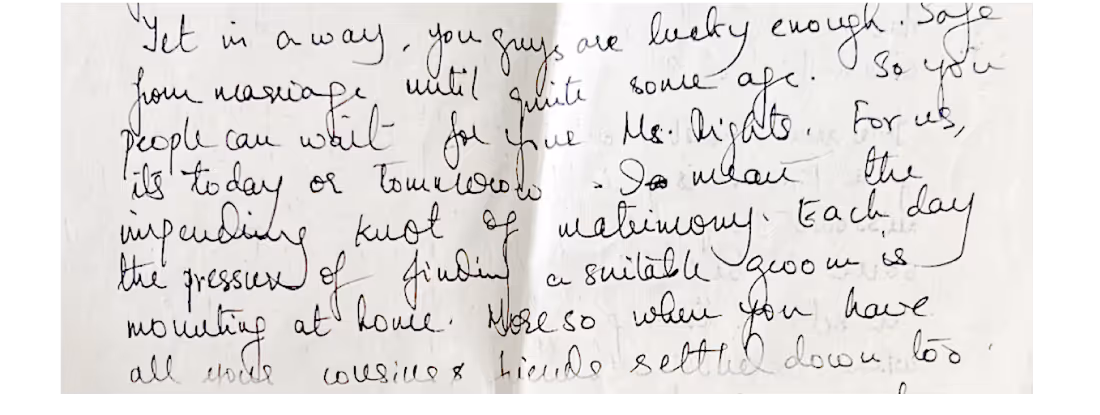 Yet in a way, you guys are lucky enough. Safe
from marriage until quite some age. So you
people can wait for your Ms. Rights. For us,
its today or tomorrow. I mean the
impending knot of matrimony. Each day
the pressure of finding a suitable groom is
mounting at home. More so when you have
all your cousins & friends settled down too.